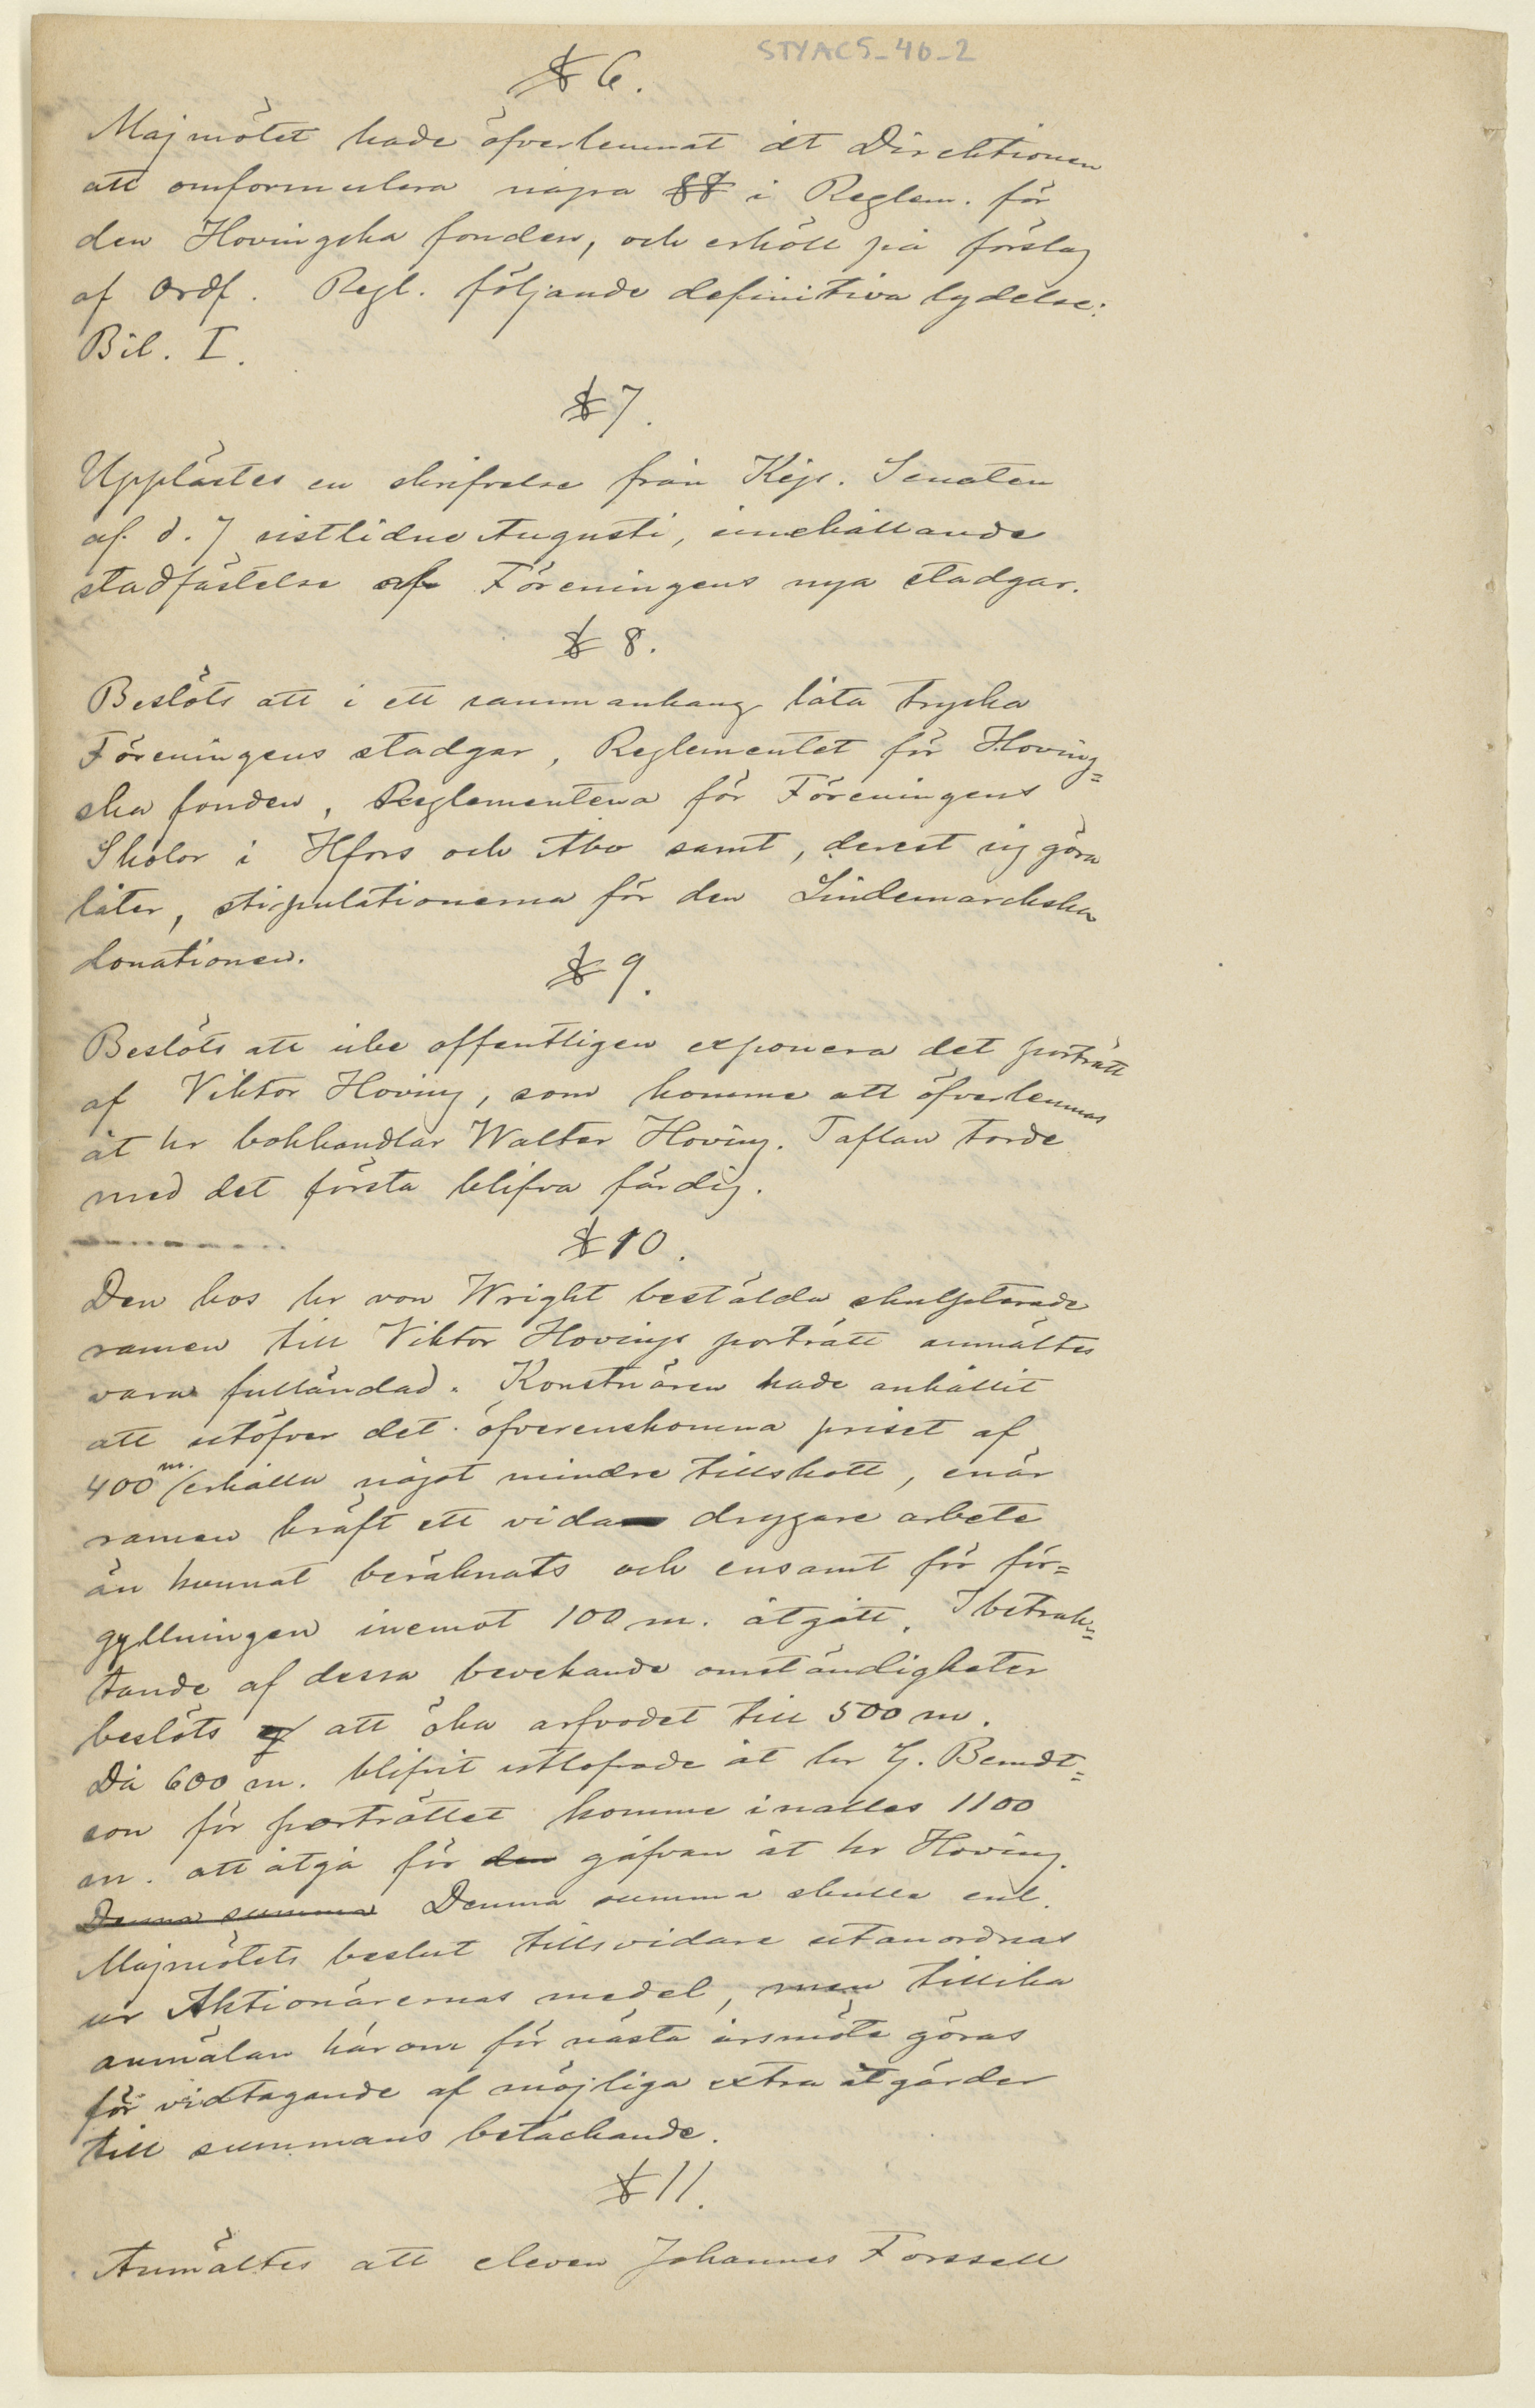 STYAC5_46_2
§ 6.
Majmötet hade öfverlemnat åt Direktionen
att omformulera några §§ i Reglem. för
den Hovingska fonden, och erhöll på förslag
af Ordf. Regl. följande definitiva lydelse:
Bil. I.
§ 7.
Upplästes en skrifvelse från Kejs. Senaten
af d. 7 sistlidne Augusti, innehållande
stadfästelse af Föreningens nya stadgar.
§ 8.
Beslöts att i ett sammanhang låta trycka
Föreningens stadgar, Reglementet för Hoving=
ska fonden, Reglementena för Föreningens
Skolor i Hfors och Åbo samt, derest sig göra
låter, stipulationerna för den Lindemarckska
donationen.
§ 9.
Beslöts att icke offentligen exponera det porträtt
af Viktor Hoving, som komme att öfverlemnas
åt hr bokhandlar Walter Hoving. Taflan torde
med det första blifva färdig.
§ 10.
Den hos hr von Wright bestälda skulpterade
ramen till Viktor Hovings porträtt anmältes
vara fulländad. Konstnären hade anhållit
att utöfver det öfverenskomna priset af
400 m. erhålla något mindre tillskott, enär
ramen kräft ett vida drygare arbete
än kunnat beräknats och ensamt för för=
gyllningen inemot 100 m. åtgått. I betrak=
tande af dessa bevekande omständigheter
beslöts att öka arfvodet till 500 m.
Då 600 m. blifvit utlofvade åt hr G. Berndt=
son för porträttet komme inalles 1100
m. att åtgå för den gåfvan åt hr Hoving.
Denna summa Denna summa skulle enl.
Majmötets beslut tillsvidare utanordnas
ur Aktionärernas medel, men tillika
anmälan härom för nästa årsmöte göras
för vidtagande af möjliga extra åtgärder
till summans betäckande.
§ 11.
Anmältes att eleven Johannes Forssell